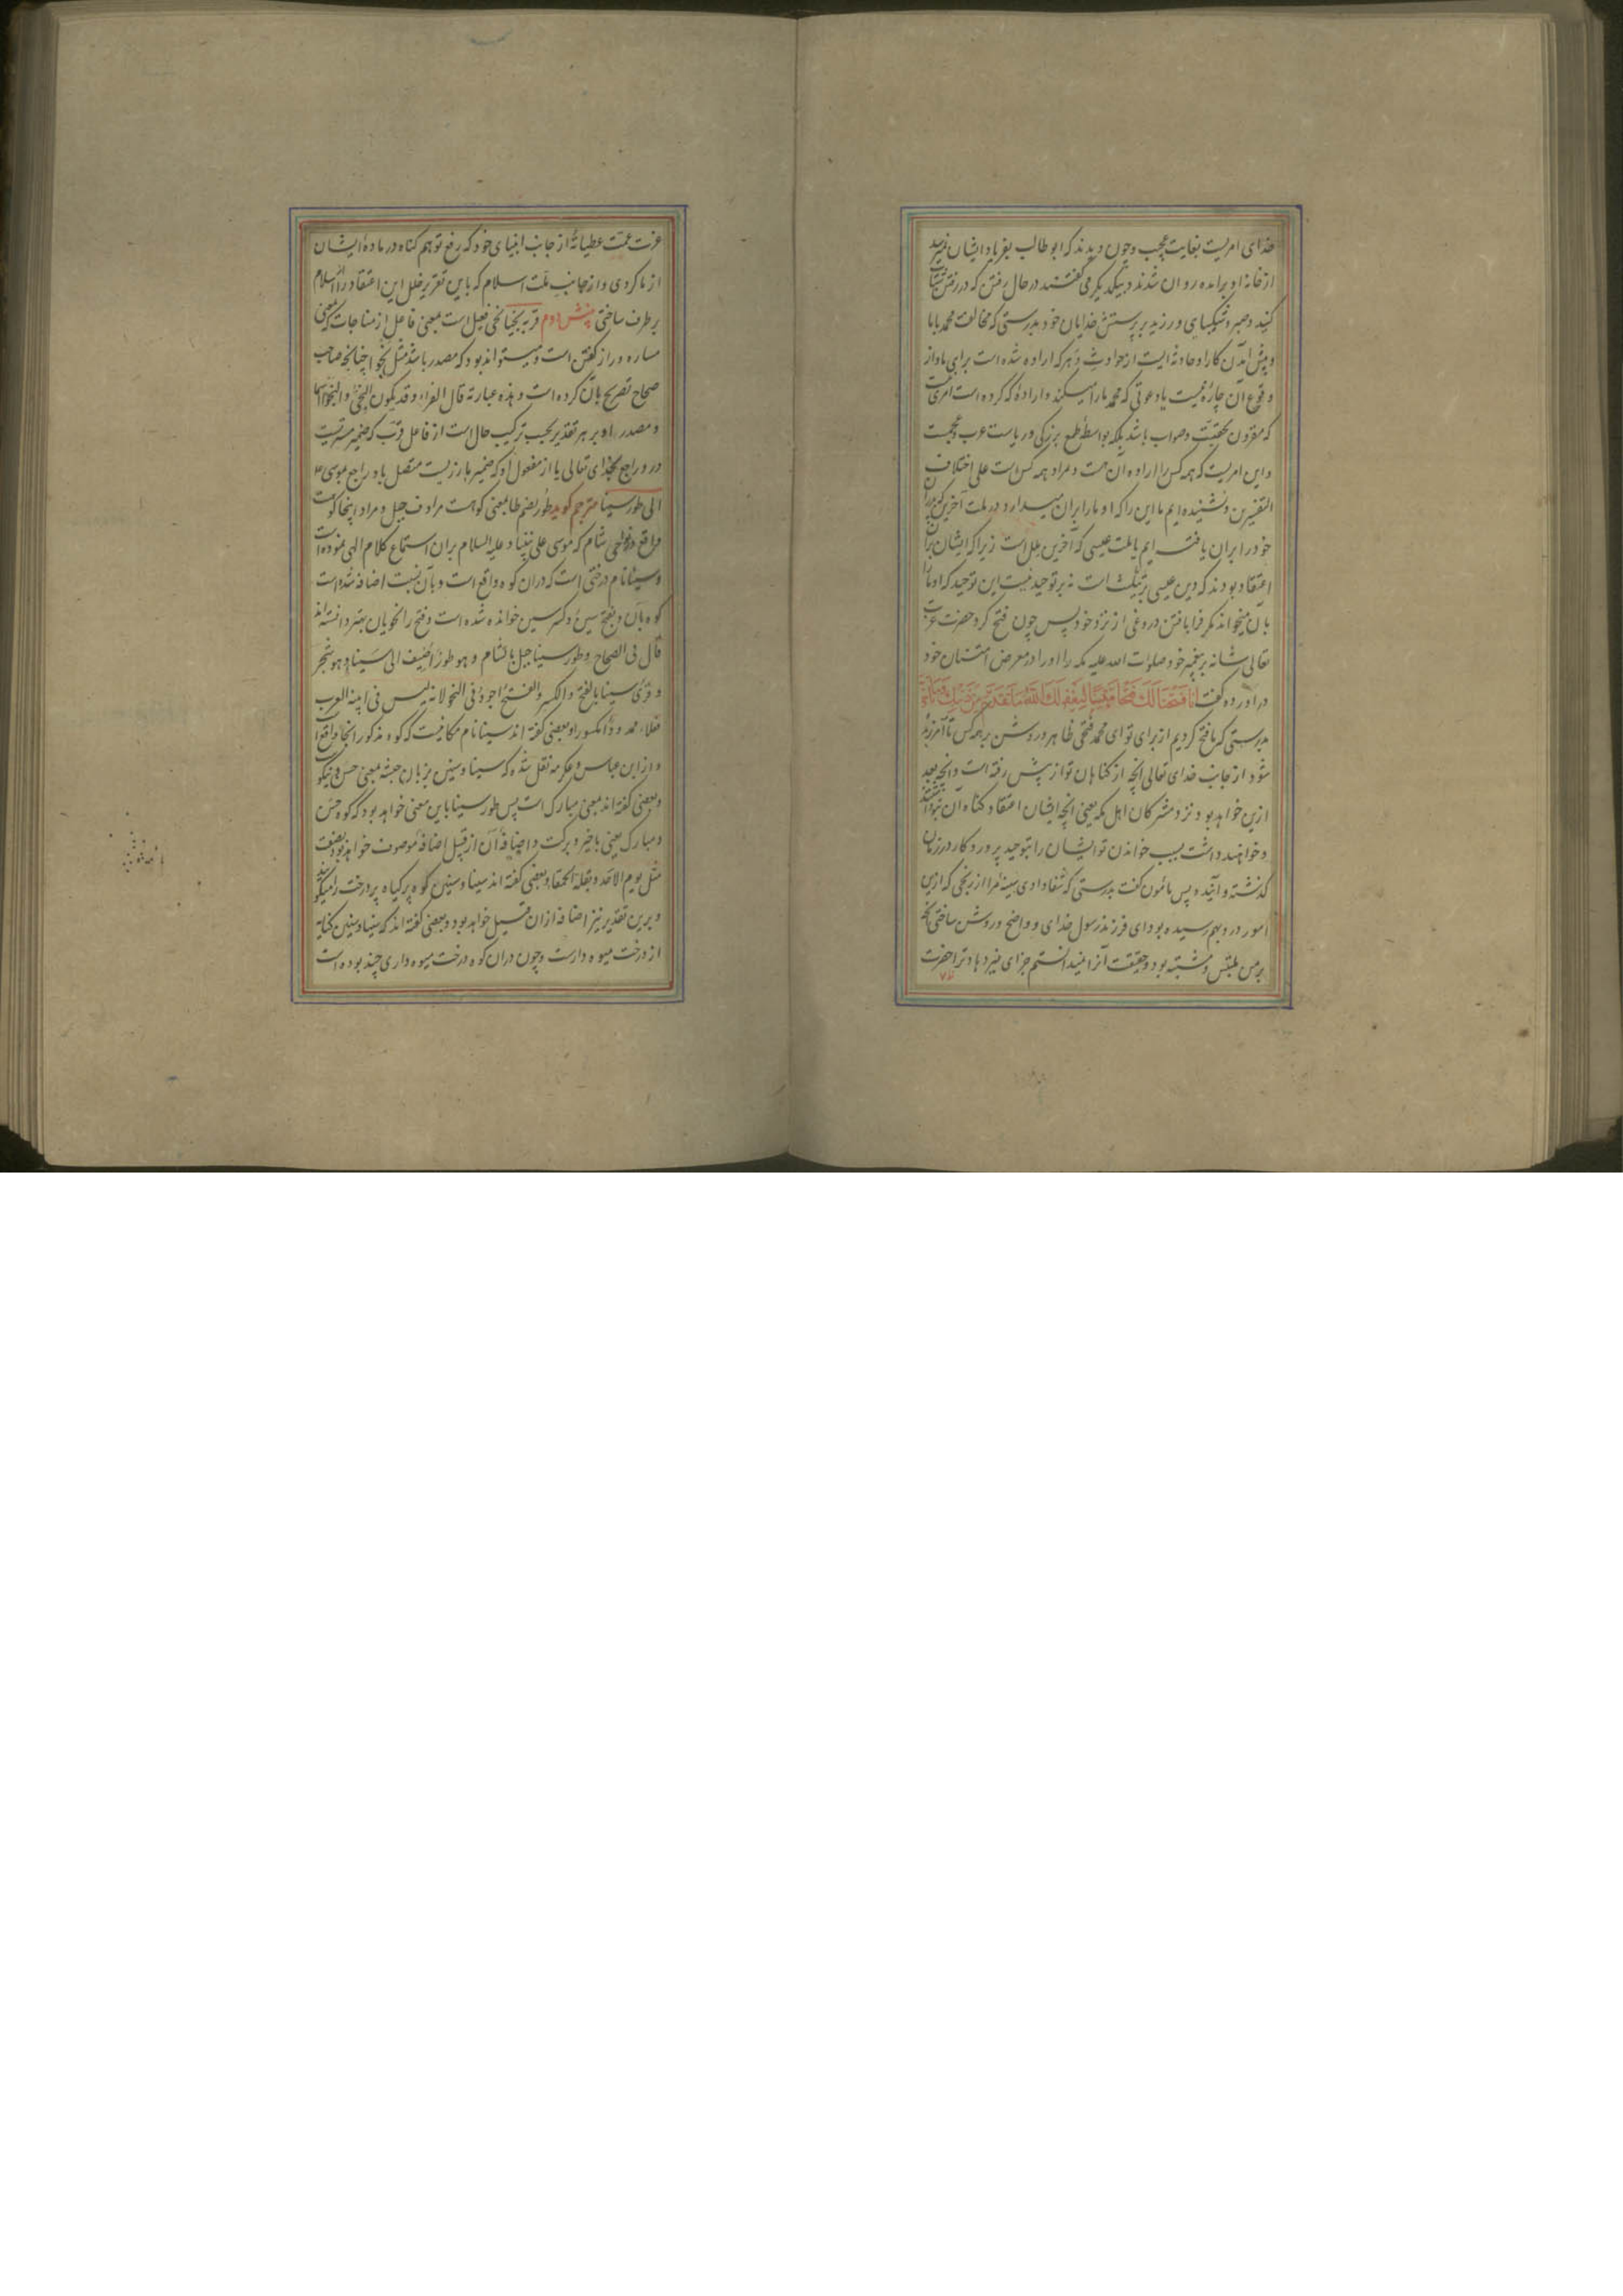 خدای امریست بغایت عجب و چون دیدند که ابو طالب بفریاد ایشان نمیرسد
از خانه او برآمده روان شدند و بیکدیگر می گفتند در حال رفتن که در رفتن شتاب
کنید و صبر و شکیبای ورزید بر پرستش خدایان خود بدرستی که مخالفت محمد با ما
و پیش آمدن کار او حادثه ایست از حوادث دهر که اراده شده است برای ما و از
وقوع آن چاره نیست یا دعوتی که محمد ما را میکند و اراده که کرده است امری نیست
که مقرون بحقیت و صواب باشد بلکه بواسطه طمع بزرگی و ریاست عرب و عجمست
و این امریست که همه کس را اراده آن هست و مراد همه کس است علی اختلاف
التفسیرین و نشنیده ایم ما این را که او ما را بران میدارد در ملت آخرین که پدران
خود را بران یافته ایم یا ملت عیسی که آخرین ملل است زیرا که ایشان بران
اعتقاد بودند که دین عیسی بر تثلیث است نه بر توحید نیست این توحید که او ما را
بآن میخواند مگر فرا بافتن دروغی از نزد خود پس چون فتح کرد حضرت عزت
تعالی شانه بر پیغمبر خود صلوات الله علیه مکه را او را در معرض امتنان خود
در آورده گفت انا فتحنا لک فتحا مبینا لیغفر لک الله ما تقدم من ذنبک و ما تاخر
بدرستی که ما فتح کردیم از برای تو ای محمد فتحی ظاهر و روشن بر همه کس تا آمرزیده
شود از جانب خدای تعالی آنچه از گناهان تو از پیش رفته است و آنچه بعد
ازین خواهد بود نزد مشرکان اهل مکه یعنی آنچه ایشان اعتقاد گناه آن نموده اند
و خواهند داشت بسبب خواندن تو ایشان را بتوحید پرورد کار در زمان
گذشته و آینده پس مأمون گفت بدرستی که شفا دادی سینه مرا از رنجی که ازین
امور در و بهم رسیده بود ای فرزند رسول خدای و واضح و روشن ساختی آنچه
بر من ملتبس و مشتبه بود و حقیقت آنرا نمیدانستم جزای خیر دهاد ترا حضرت
عزت عمت عطیاته از جانب انبیای خود که رفع توهم گناه در ماده ایشان
از ما کردی و از جانب ملت اسلام که باین تقریر خلل این اعتقاد را از اسلام
بر طرف ساختی پنشس دوم قربه نجیا نجی فعیل است بمعنی فاعل از مناجات که بمعنی
مساره و راز گفتن است و میتواند بود که مصدر باشد مثل نجوا چنانچه صاحب
صحاح تصریح بآن کرده است و هذه عبارته قال الفراء و قد یکون النجی و النجوا اسما
و مصدرا و بر هر تقدیر بحسب ترکیب حال است از فاعل قرب که ضمیر مستتریست
در و راجع بخدای تعالی یا از مفعول او که ضمیر بارزیست متصل باو راجع بموسی ع
الی طور سینا مترجم گوید طور بضم طا بمعنی کوهست مرادف جبل و مراد اینجا کوهیست
واقع در نواحی شام که موسی علی نبینا و علیه السلام بران استماع کلام الهی نموده است
و سینا نام درختی است که دران کوه واقع است و بآن نسبت اضافه شده است
کوه بآن و بفتح سین و کسر سین خوانده شده است و فتح را نحویان بهتر دانسته اند
قال فی الصحاح و طور سینا جبل بالشام و هو طور اضیف الی سینا و هو شجر
و قرئ سینا بالفتح و الکسر و الفتح اجود فی النحو لانه لیس فی ابنیة العرب
فعلاء ممدودا مکسور او بعضی گفته اند سینا نام مکانیست که کوه مذکور آنجا واقع است
و از ابن عباس و عکرمه نقل شده که سینا و سینین بزبان حبشه بمعنی حسن و نیکو
و بعضی گفته اند بمعنی مبارک است پس طور سینا باین معنی خواهد بود که کوه حسن
و مبارک یعنی با خیر و برکت و اضافه آن از قبیل اضافه موصوف خواهد بود بصفت
مثل یوم الاحد و بقلة الحمقاء و بعضی گفته اند سینا و سینین کوه پر گیاه پر درخت را میگویند
و برین تقدیر نیز اضافه ازان قبیل خواهد بود و بعضی گفته اند که سینا و سینین کنایه
از درخت میوه دارست و چون دران کوه درخت میوه داری چند بوده است